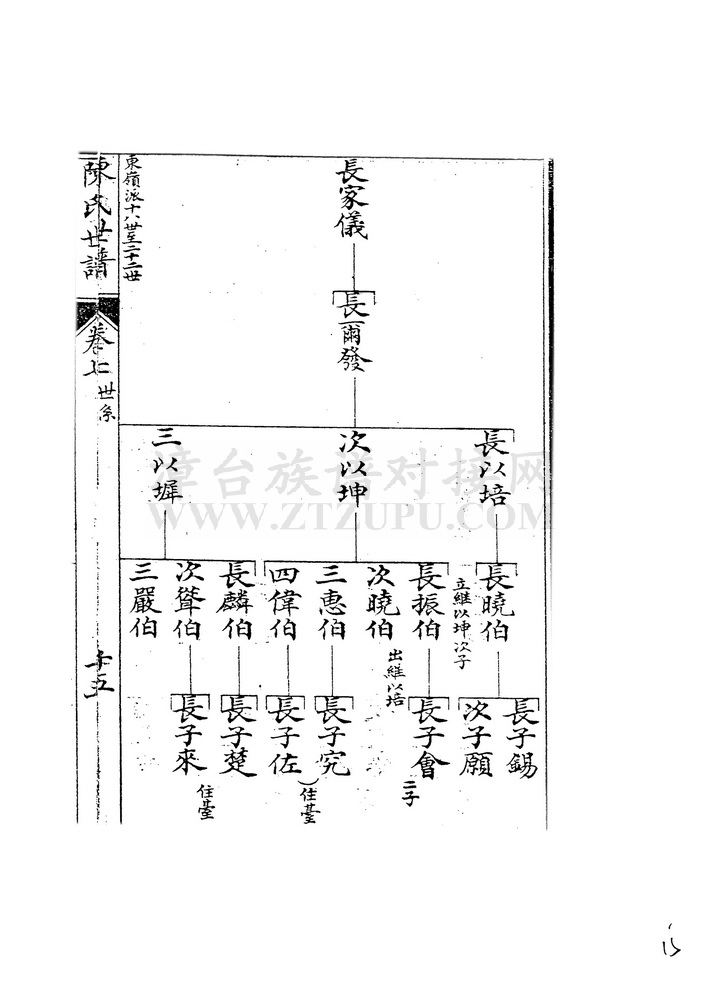 長家儀
長爾發
長以培
次以坤
三以墀
長曉伯
立繼以坤次子
長振伯
次曉伯
出繼以培
三惠伯
四偉伯
長麟伯
次聳伯
三嚴伯
長子錫
次子願
長子會
二子
長子究
住臺
長子佐
長子楚
長子來
住臺
東嶺派十八世至二十二世
陳氏世譜
卷七
世系
十五
漳台族谱对接网
WWW.ZTZUPU.COM
15